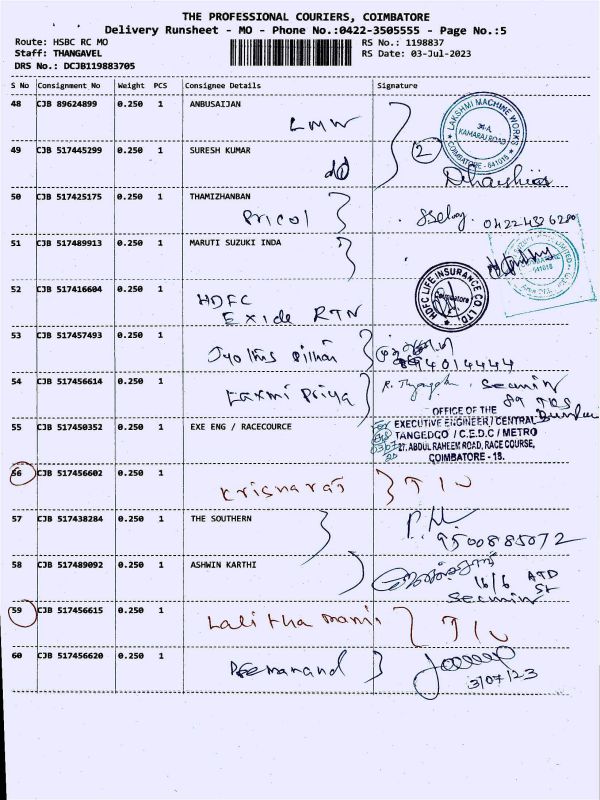 THE PROFESSIONAL COURIERS, COIMBATORE
Delivery Runsheet - MO - Phone No.:0422-3505555 - Page No.:5
Route: HSBC RC MO
RS No.: 1198837
Staff: THANGAVEL
RS Date: 03-Jul-2023
DRS No.: DCJB119883705
S No Consignment No Weight PCS Consignee Details Signature
48 CJB 89624899 0.250 1 ANBUSAIJAN
LMW
LAKSHMI MACHINE WORKS
KAMARAJ ROAD
COIMBATORE - 641018
49 CJB 517445299 0.250 1 SURESH KUMAR
dd
2
50 CJB 517425175 0.250 1 THAMIZHANBAN
Pricol
51 CJB 517489913 0.250 1 MARUTI SUZUKI INDA
641018
52 CJB 517416604 0.250 1 HDFC
Exide RTN
HDFC LIFE INSURANCE CO. LTD.
Coimbatore
53 CJB 517457493 0.250 1
54 CJB 517456614 0.250 1 Laxmi Priya
55 CJB 517450352 0.250 1 EXE ENG / RACECOURCE
OFFICE OF THE
EXECUTIVE ENGINEER / CENTRAL
TANGEDCO / C.E.D.C / METRO
27, ABDUL RAHEEM ROAD, RACE COURSE,
COIMBATORE - 18.
56 CJB 517456602 0.250 1 Krisnaraj
57 CJB 517438284 0.250 1 THE SOUTHERN
9500885072
58 CJB 517489092 0.250 1 ASHWIN KARTHI
16/6
59 CJB 517456615 0.250 1 Lalitha mani
60 CJB 517456620 0.250 1 Premanand
3/07/23